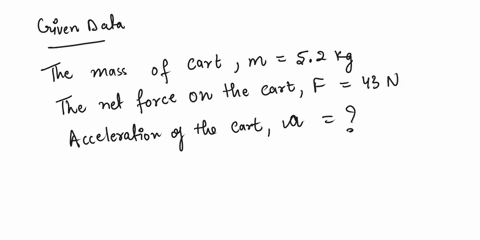 Given Data
The mass of cart, m = 5.2 kg
The net force on the cart, F = 43 N
Acceleration of the cart, a = ?